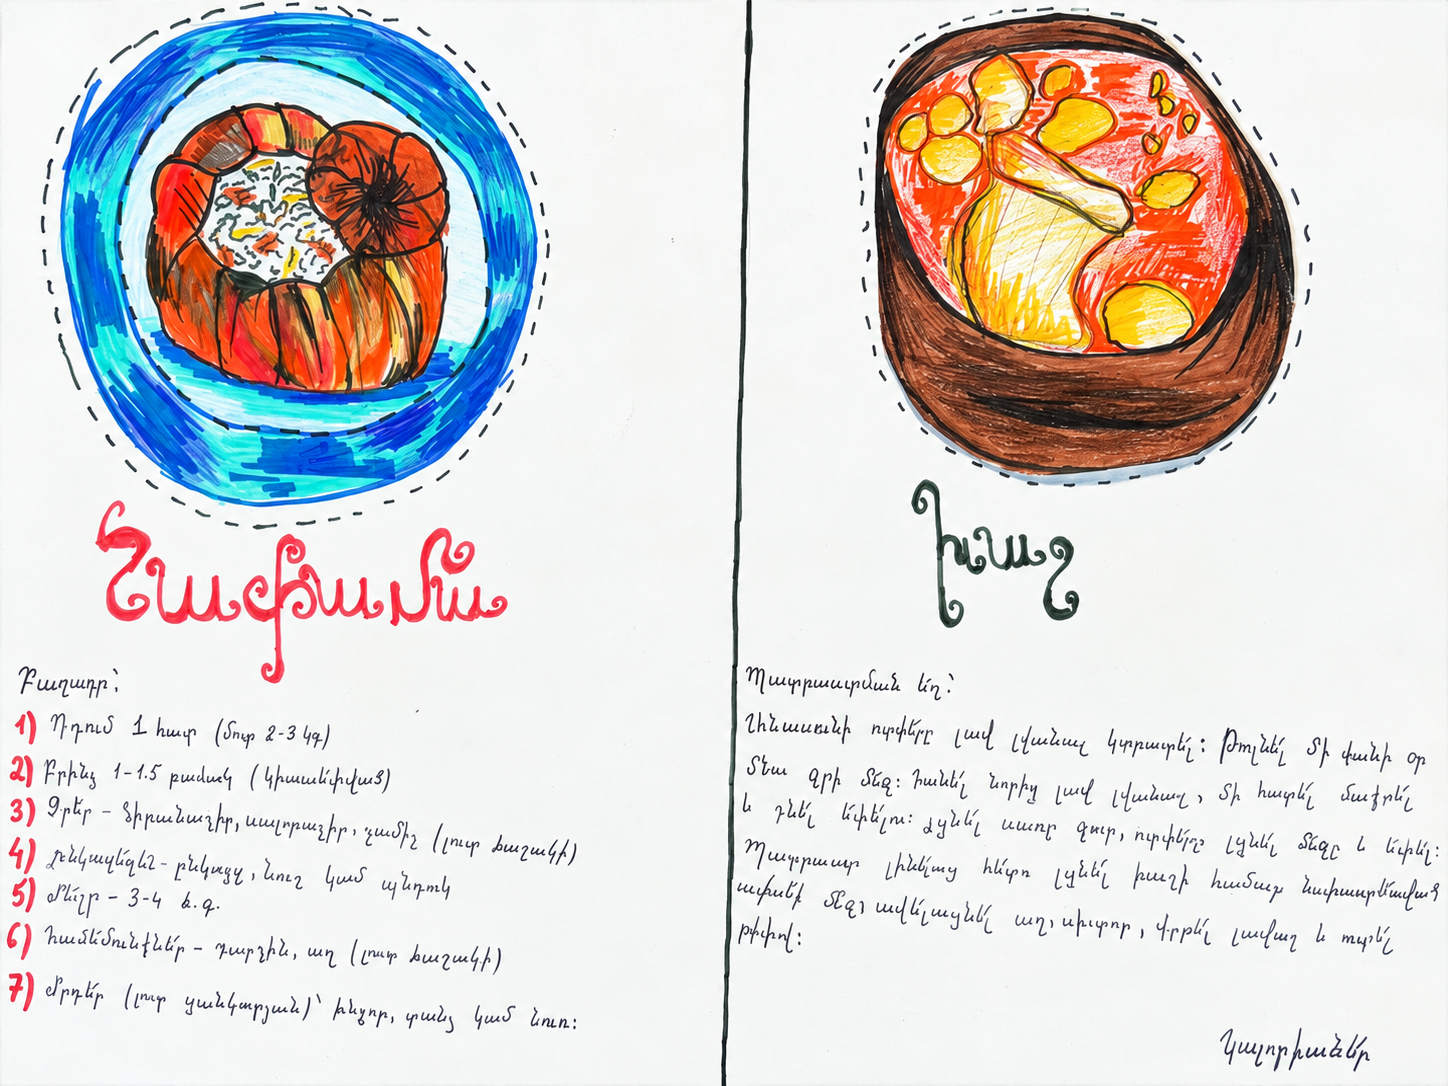 Ղափամա
Բաղադր՝
1) Դդում 1 հատ (մոտ 2-3 կգ)
2) Բրինձ 1-1.5 բաժակ (կիսաեփված)
3) Չրեր - ծիրանաչիր, սալորաչիր, չամիչ (ըստ ճաշակի)
4) Ընկուզեղեն - ընկույզ, նուշ կամ պնդուկ
5) Մեղր - 3-4 ճ.գ.
6) Համեմունքներ - դարչին, աղ (ըստ ճաշակի)
7) Մրգեր (ըստ ցանկության)՝ խնձոր, տանձ կամ նուռ:
Խաշ
Պատրաստման եղ.՝
Անասունի ոտքերը լավ լվանալ կտրատել: Թողնել մի քանի օր
մնա ջրի մեջ: Հանել նորից լավ լվանալ, մի հատել մաքրել
և դնել եփելու: Լցնել սառը ջուր, ոտքերը լցնել մեջը և եփել:
Պատրաստ լինելուց հետո լցնել խաշի համար նախատեսված
ափսեի մեջ, ավելացնել աղ, սխտոր, փրթել լավաշ և ուտել
թթվով:
Կալորիաներ